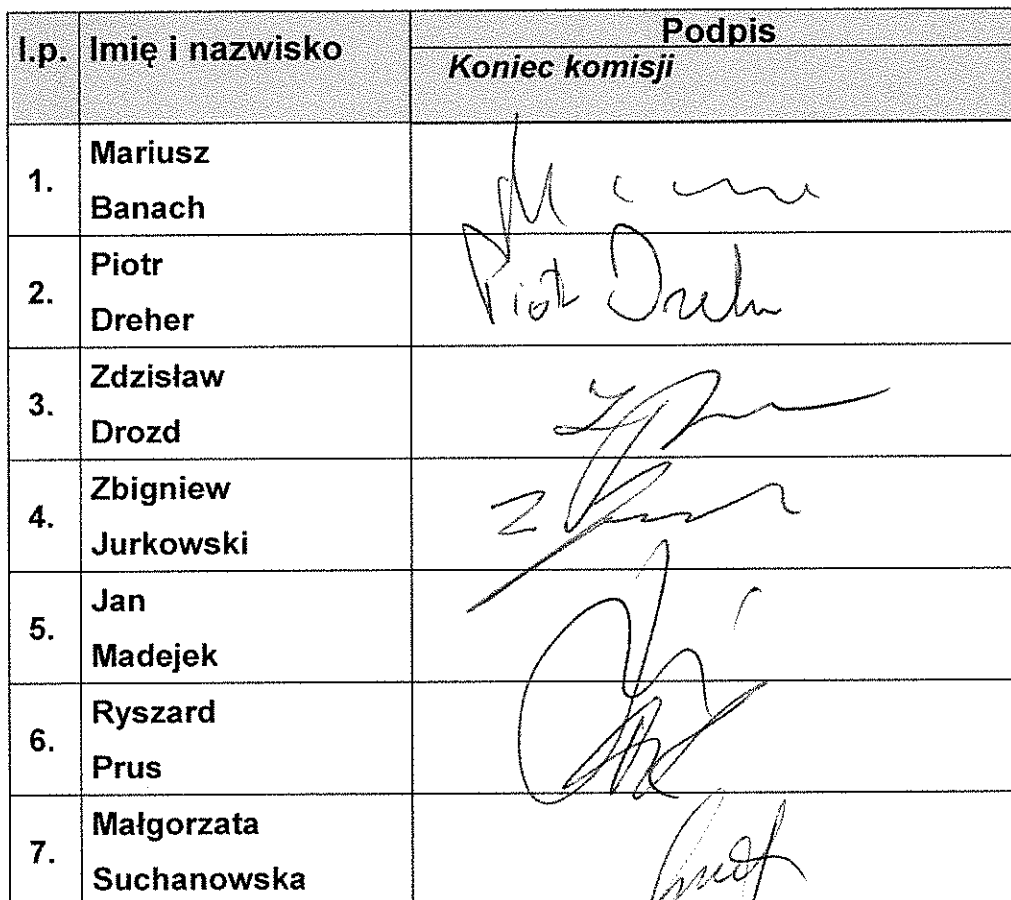 l.p. Imię i nazwisko Podpis
Koniec komisji
1. Mariusz
Banach
2. Piotr
Dreher
Piotr Dreher
3. Zdzisław
Drozd
4. Zbigniew
Jurkowski
5. Jan
Madejek
6. Ryszard
Prus
7. Małgorzata
Suchanowska